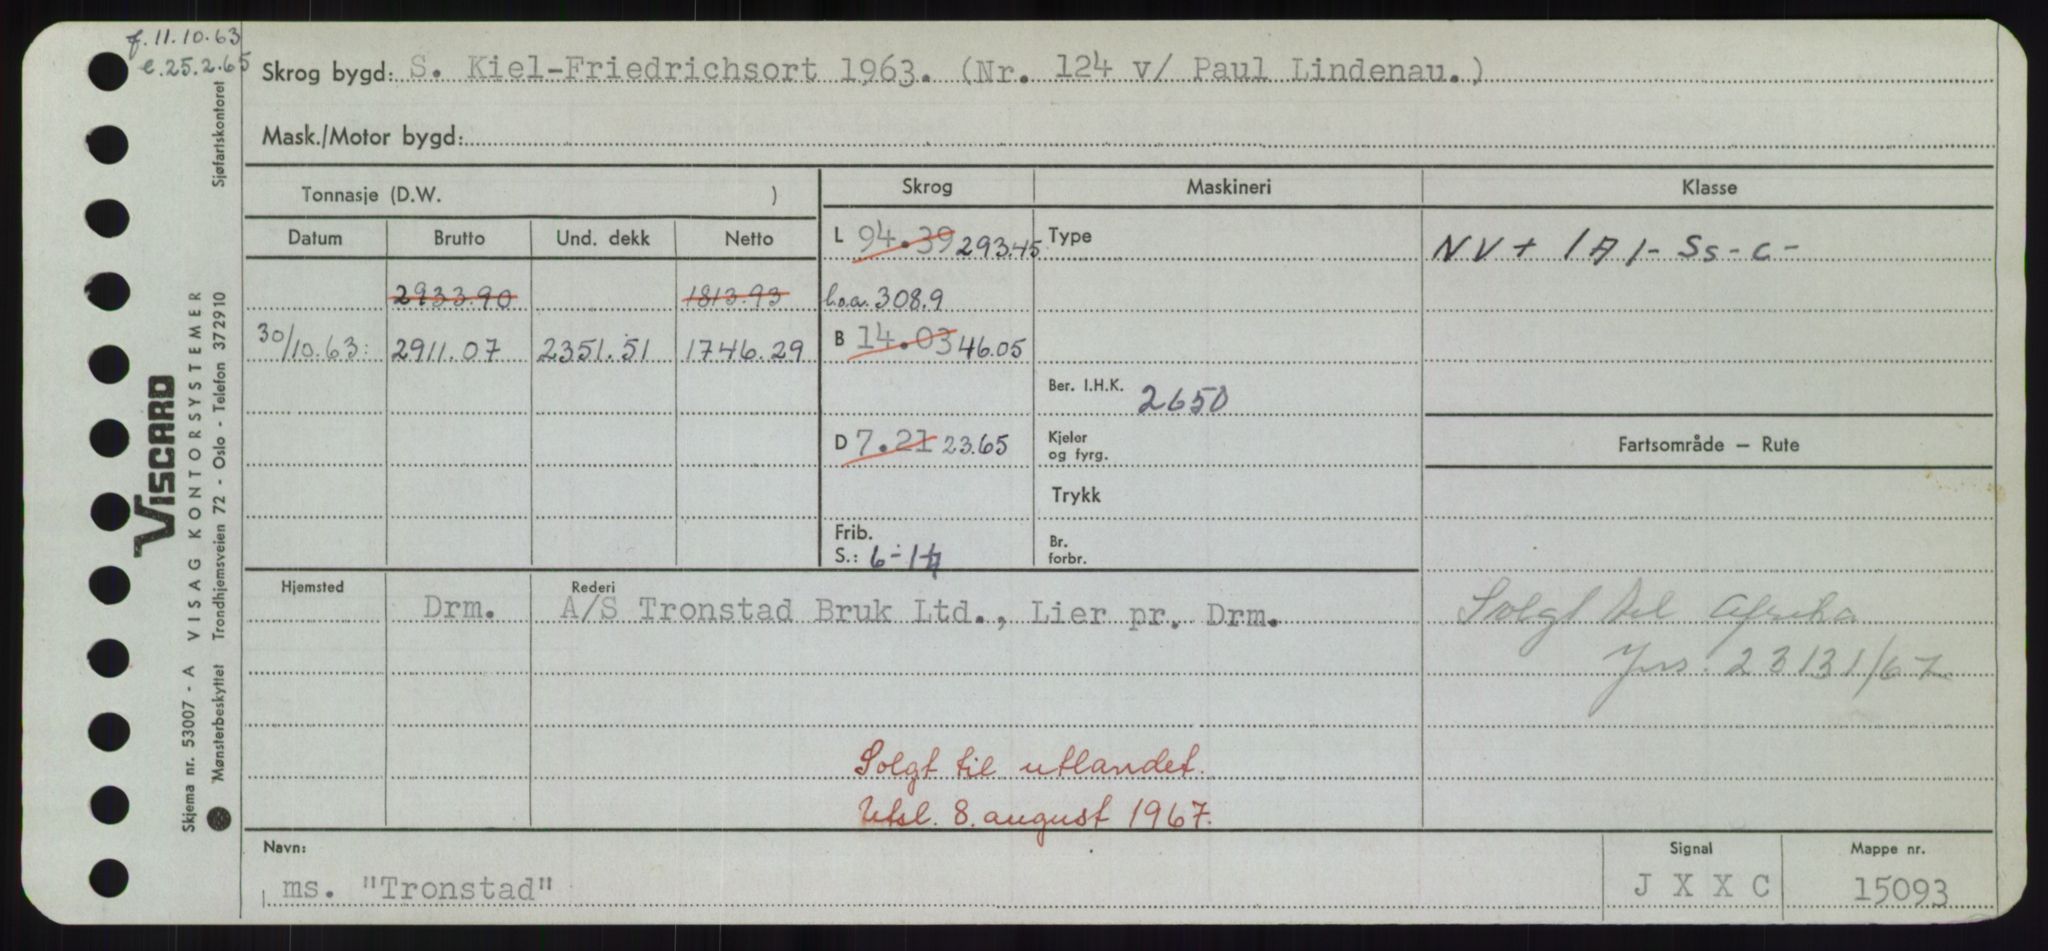 f. 11.10.63
e. 25.2.65
Skrog bygd: S. Kiel-Friedrichsort 1963. (Nr. 124 v/ Paul Lindenau.)
Mask./Motor bygd:
Tonnasje (D.W. )
Skrog Maskineri Klasse
Datum Brutto Und. dekk Netto
L 94.39 293.45 Type NV + 1A1 - Ss - c -
2933.90 1813.93 l.o.a. 308.9
30/10.63: 2911.07 2351.51 1746.29 B 14.03 46.05
Ber. I.H.K. 2650
D 7.21 23.65 Kjeler og fyrg. Fartsområde — Rute
Trykk
Frib. S.: 6-1 Br. forbr.
Hjemsted Rederi
Drm. A/S Tronstad Bruk Ltd., Lier pr. Drm.
Solgt til Afrika
Jrs. 23131/67
Solgt til utlandet.
Utsl. 8. august 1967.
Navn: Signal Mappe nr.
ms. "Tronstad" J X X C 15093
VISCARD
Skjema nr. 53007 - A VISAG KONTORSYSTEMER
Mønsterbeskyttet Trondhjemsveien 72 - Oslo - Telefon 372910 Sjøfartskontoret